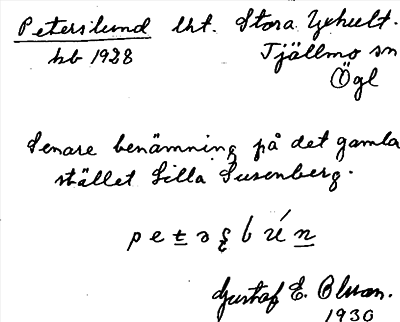 Peterslund lht. Stora Zephult.
hb 1928 Tjällmo sn
Ögl
Senare benämning på det gamla
stället Lilla Susenberg.
Gustaf E. Olsson.
1930